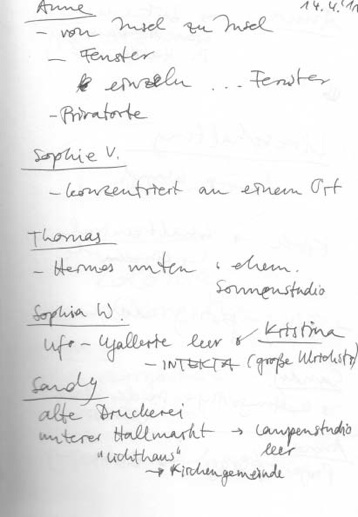 Anne 14.4.11
- von Insel zu Insel
- Fenster
einzeln ... Fenster
- Privatorte
Sophie V.
- konzentriert an einem Ort
Thomas
- Hermes unten ehem.
Sonnenstudio
Sophia W. Kristina
Ufo - Gallerie leer
- INTEKTA (große Ulrichstr)
Sandy
alte Druckerei
unterer Hallmarkt → Lampenstudio
"Lichthaus" leer
→ Kirchengemeinde